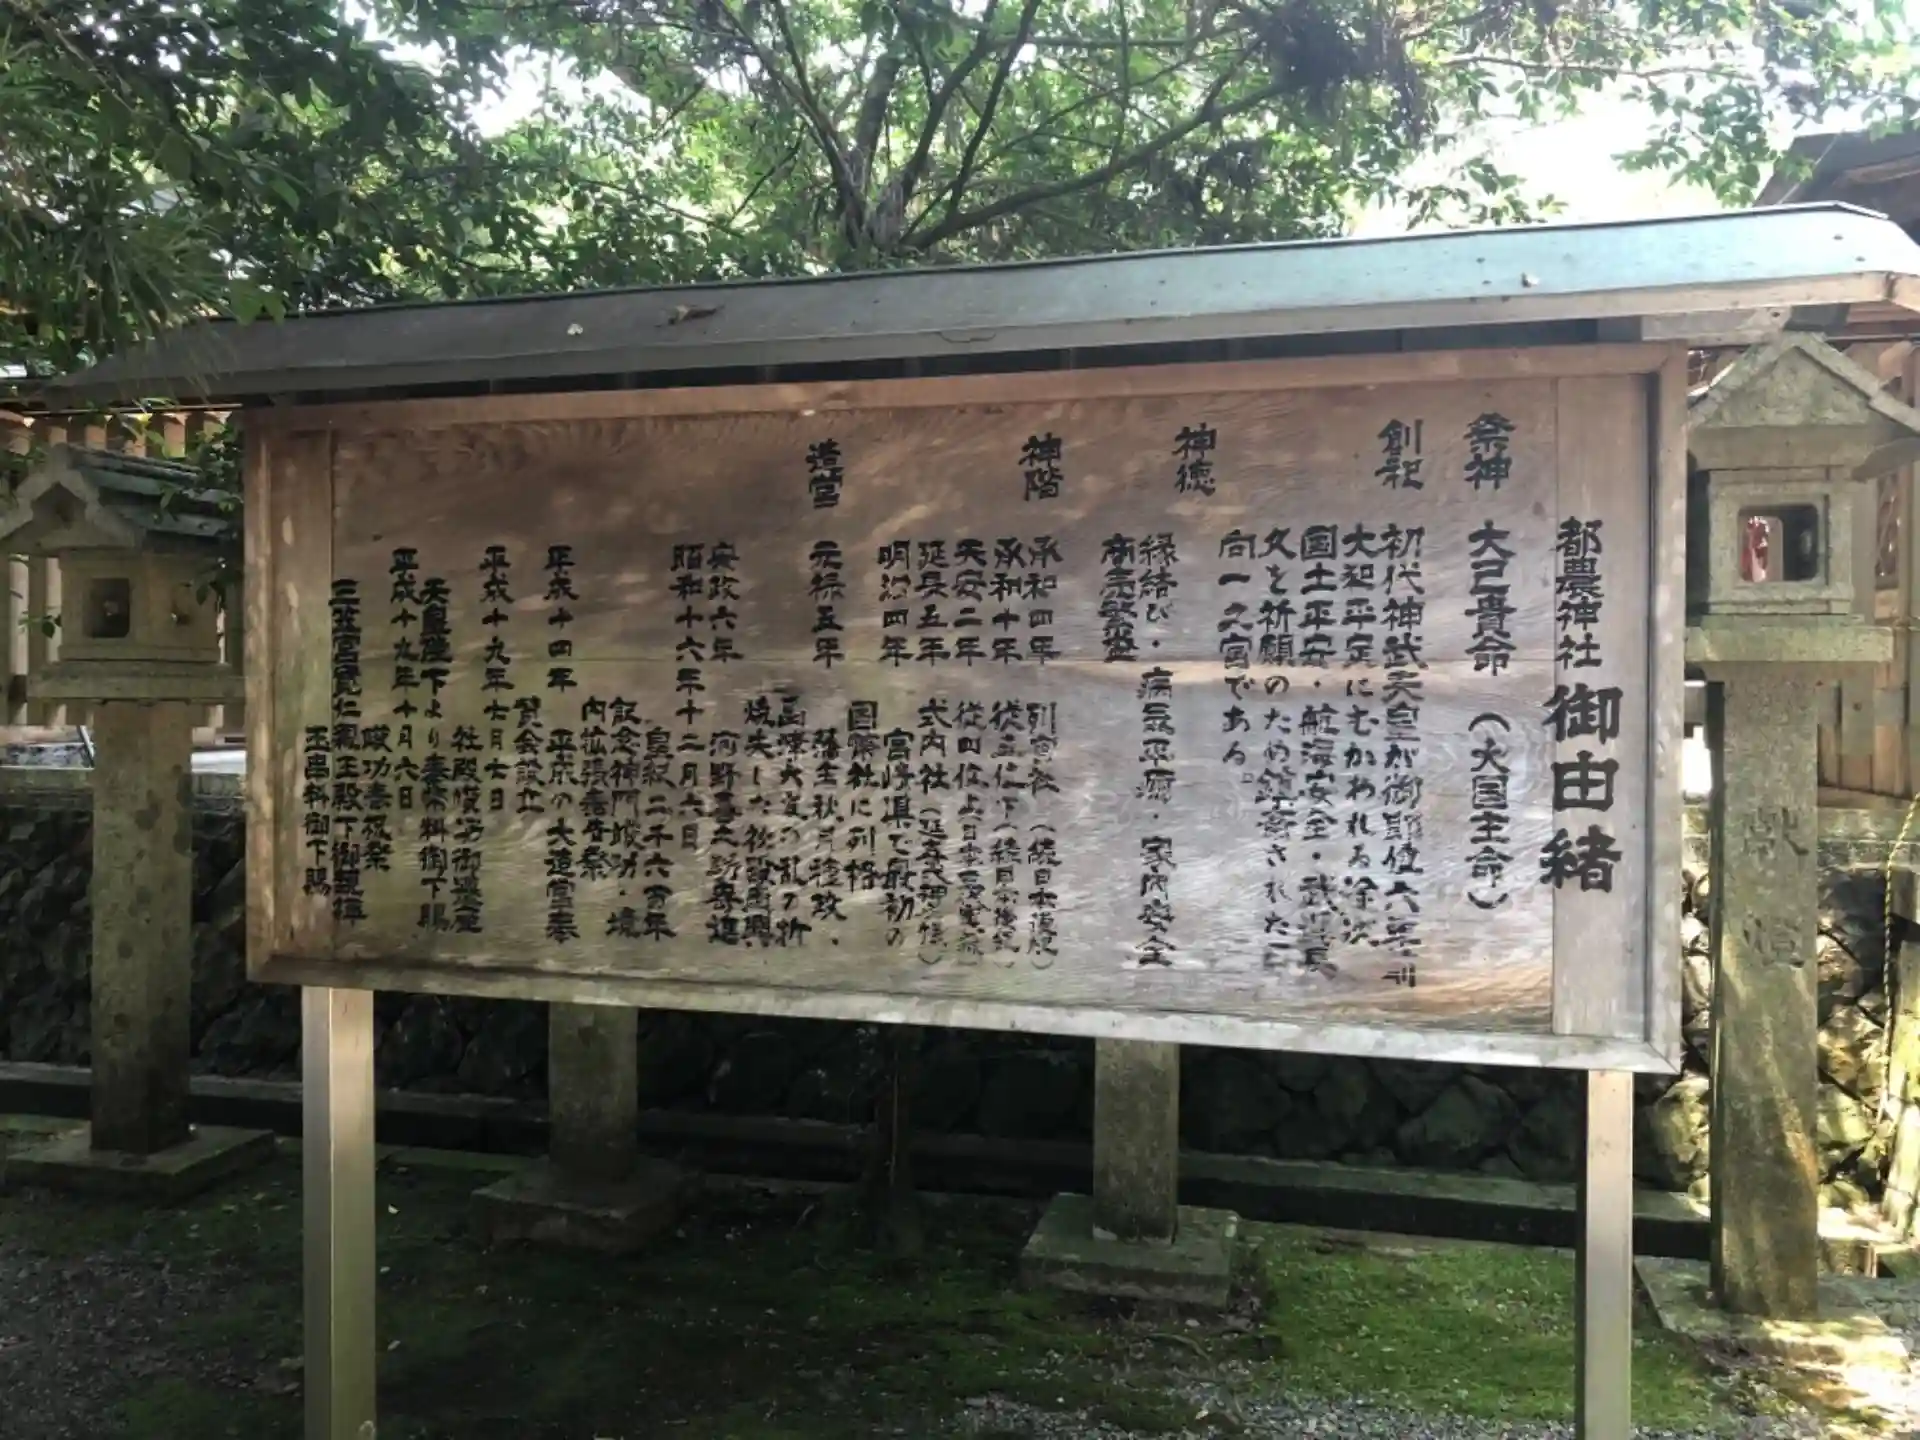 都農神社 御由緒
祭神 大己貴命(大国主命)
創祀 初代神武天皇が御即位六年前
大和平定にむかわれる途次
国土平安・航海安全・武運長
久を祈願のため鎮斎された日
向一之宮である。
神徳 縁結び・病気平癒・家内安全
商売繁盛
神階 承和四年 列官社(続日本後紀)
承和十年 従五位下(続日本後紀)
天安二年 従四位上
延長五年 式内社(延喜式神名帳)
明治四年 宮崎県で最初の
国幣社に列格
造営 元禄五年 藩主秋月種政、
島津大友の乱の折
焼失した後殿再興
安政六年 河野喜之助寄進
昭和十六年十二月六日
皇紀二千六百年
記念神門竣功・境
内拡張奉告祭
平成十四年 平成の大造営奉
賛会設立
平成十九年七月七日
社殿竣功御遷座
天皇陛下より奏幣料御下賜
平成十九年十月六日
竣功奉祝祭
三笠宮寛仁親王殿下御親拝
玉串料御下賜